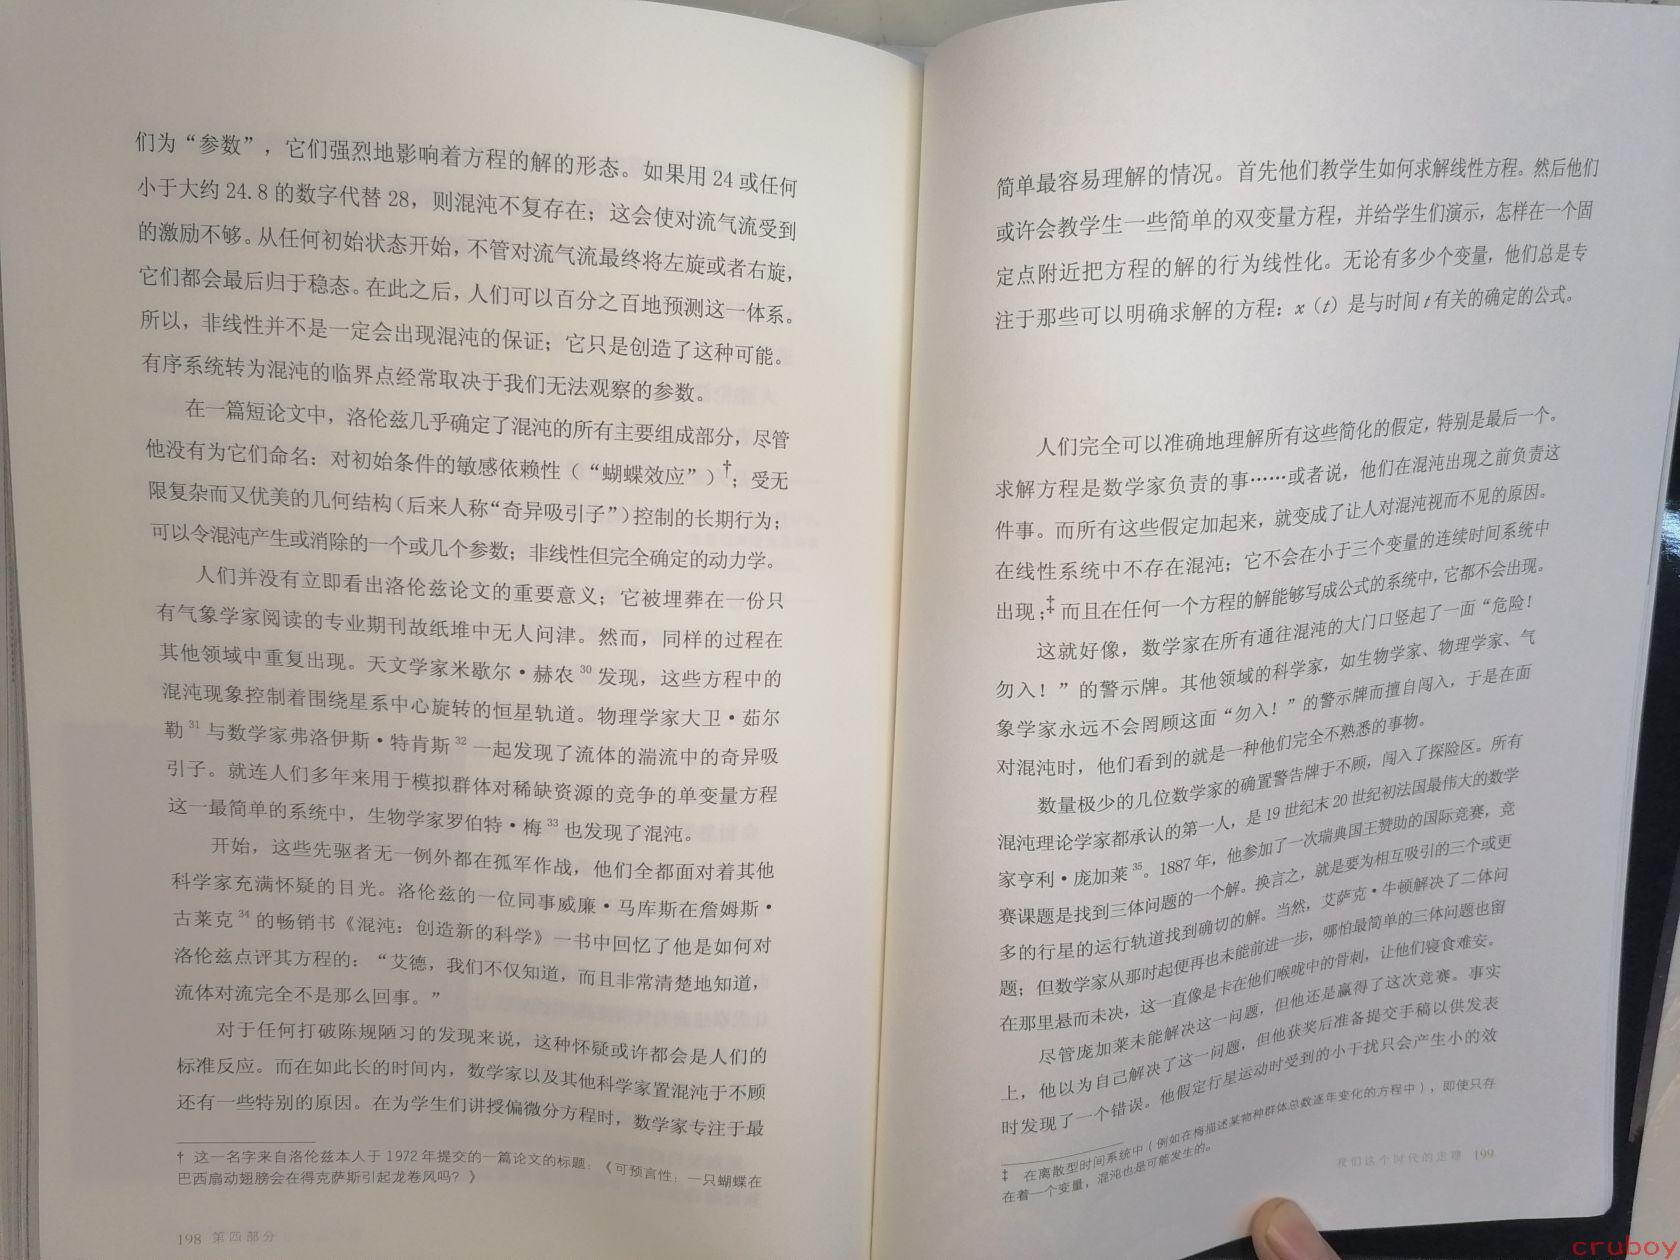 们为“参数”，它们强烈地影响着方程的解的形态。如果用 24 或任何
小于大约 24.8 的数字代替 28，则混沌不复存在；这会使对流气流受到
的激励不够。从任何初始状态开始，不管对流气流最终将左旋或者右旋，
它们都会最后归于稳态。在此之后，人们可以百分之百地预测这一体系。
所以，非线性并不是一定会出现混沌的保证；它只是创造了这种可能。
有序系统转为混沌的临界点经常取决于我们无法观察的参数。
在一篇短论文中，洛伦兹几乎确定了混沌的所有主要组成部分，尽管
他没有为它们命名：对初始条件的敏感依赖性（“蝴蝶效应”）†；受无
限复杂而又优美的几何结构（后来人称“奇异吸引子”）控制的长期行为；
可以令混沌产生或消除的一个或几个参数；非线性但完全确定的动力学。
人们并没有立即看出洛伦兹论文的重要意义；它被埋葬在一份只
有气象学家阅读的专业期刊故纸堆中无人问津。然而，同样的过程在
其他领域中重复出现。天文学家米歇尔·赫农30 发现，这些方程中的
混沌现象控制着围绕星系中心旋转的恒星轨道。物理学家大卫·茹尔
勒31 与数学家弗洛伊斯·特肯斯32 一起发现了流体的湍流中的奇异吸
引子。就连人们多年来用于模拟群体对稀缺资源的竞争的单变量方程
这一最简单的系统中，生物学家罗伯特·梅33 也发现了混沌。
开始，这些先驱者无一例外都在孤军作战，他们全都面对着其他
科学家充满怀疑的目光。洛伦兹的一位同事威廉·马库斯在詹姆斯·
古莱克34 的畅销书《混沌：创造新的科学》一书中回忆了他是如何对
洛伦兹点评其方程的：“艾德，我们不仅知道，而且非常清楚地知道，
流体对流完全不是那么回事。”
对于任何打破陈规陋习的发现来说，这种怀疑或许都会是人们的
标准反应。而在如此长的时间内，数学家以及其他科学家置混沌于不顾
还有一些特别的原因。在为学生们讲授偏微分方程时，数学家专注于最
† 这一名字来自洛伦兹本人于 1972 年提交的一篇论文的标题：《可预言性：一只蝴蝶在
巴西扇动翅膀会在得克萨斯引起龙卷风吗？》
198 第四部分
简单最容易理解的情况。首先他们教学生如何求解线性方程。然后他们
或许会教学生一些简单的双变量方程，并给学生们演示，怎样在一个固
定点附近把方程的解的行为线性化。无论有多少个变量，他们总是专
注于那些可以明确求解的方程：x（t）是与时间 t 有关的确定的公式。
人们完全可以准确地理解所有这些简化的假定，特别是最后一个。
求解方程是数学家负责的事……或者说，他们在混沌出现之前负责这
件事。而所有这些假定加起来，就变成了让人对混沌视而不见的原因。
在线性系统中不存在混沌；它不会在小于三个变量的连续时间系统中
出现；‡ 而且在任何一个方程的解能够写成公式的系统中，它都不会出现。
这就好像，数学家在所有通往混沌的大门口竖起了一面“危险！
勿入！”的警示牌。其他领域的科学家，如生物学家、物理学家、气
象学家永远不会罔顾这面“勿入！”的警示牌而擅自闯入，于是在面
对混沌时，他们看到的就是一种他们完全不熟悉的事物。
数量极少的几位数学家的确置警告牌于不顾，闯入了探险区。所有
混沌理论学家都承认的第一人，是 19 世纪末 20 世纪初法国最伟大的数学
家亨利·庞加莱35。1887 年，他参加了一次瑞典国王赞助的国际竞赛，竞
赛课题是找到三体问题的一个解。换言之，就是要为相互吸引的三个或更
多的行星的运行轨道找到确切的解。当然，艾萨克·牛顿解决了二体问
题；但数学家从那时起便再也未能前进一步，哪怕最简单的三体问题也留
在那里悬而未决，这一直像是卡在他们喉咙中的骨刺，让他们寝食难安。
尽管庞加莱未能解决这一问题，但他还是赢得了这次竞赛。事实
上，他以为自己解决了这一问题，但他获奖后准备提交手稿以供发表
时发现了一个错误。他假定行星运动时受到的小干扰只会产生小的效
‡ 在离散型时间系统中（例如在梅描述某物种群体总数逐年变化的方程中），即使只存
在着一个变量，混沌也是可能发生的。
我们这个时代的走糖 199
cruboy